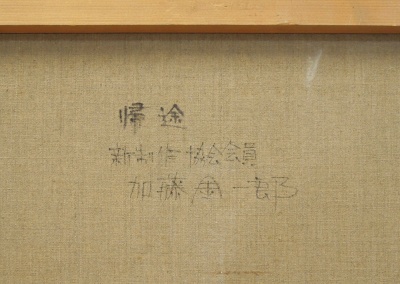 帰途
新制作協会会員
加藤金一郎